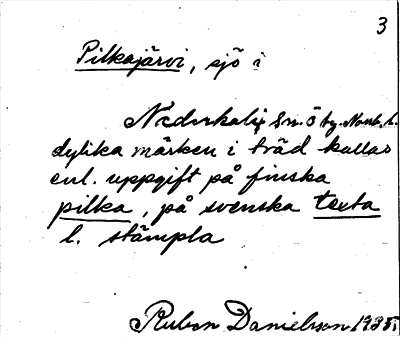 3
Pilkajärvi, sjö i
Nederkalix Sn. Ö tg. Norrb. l.
dylika märken i träd kallas
enl. uppgift på finska
pilka, på svenska texta
l. stämpla
Ruben Danielsson 1935